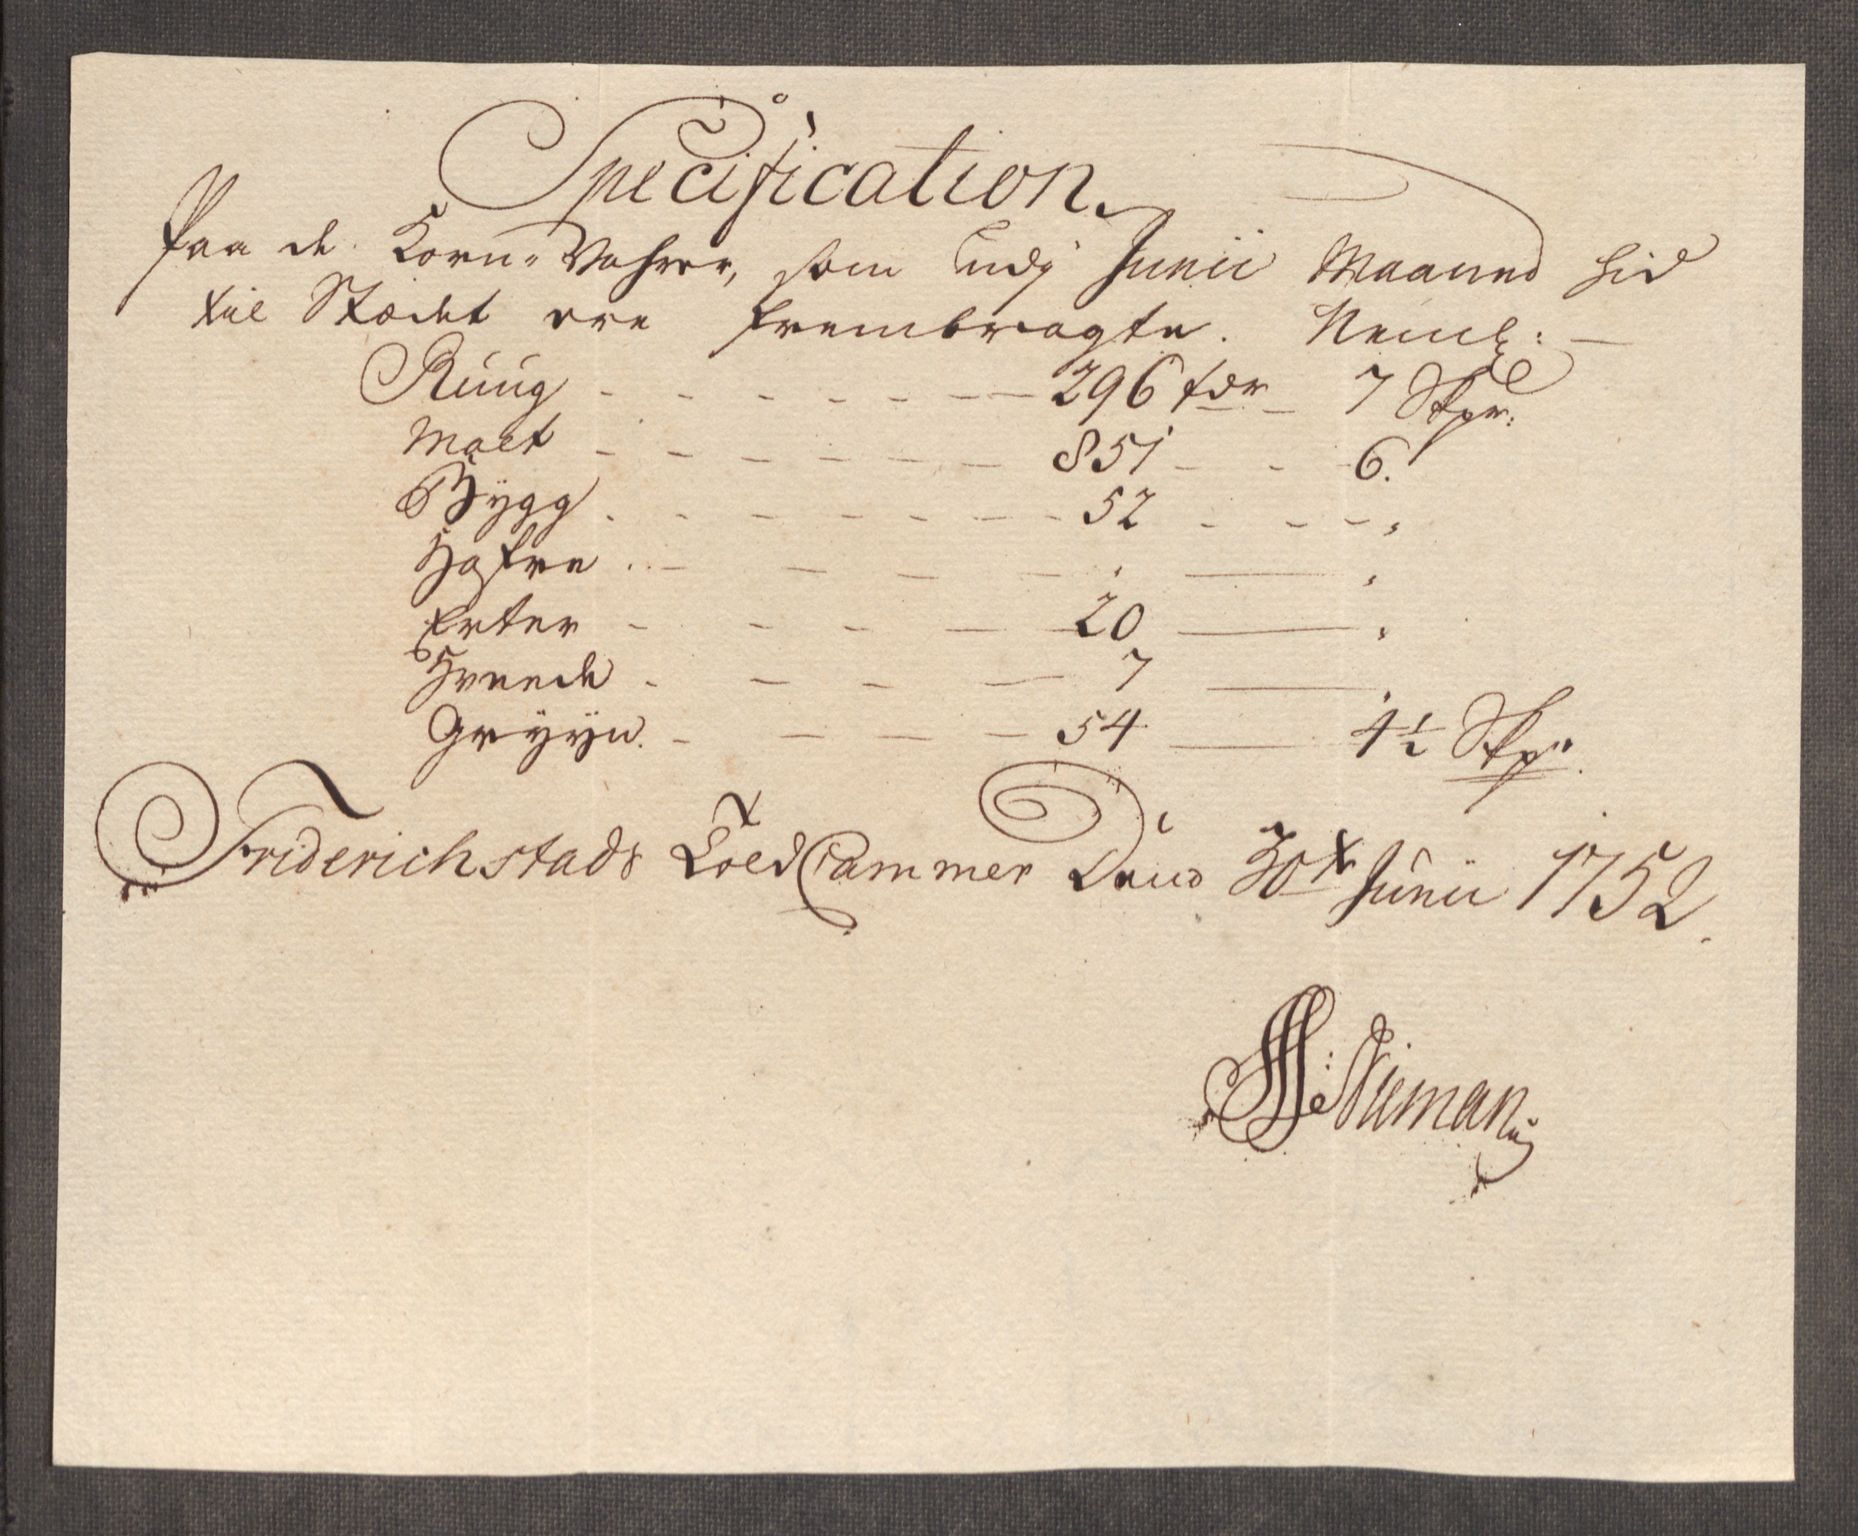 Specification
Paa de Korn-Vahrer, som udj Junii Maaned hid
til Stædet ere frembragte. Neml:
Ruug - - - - - - - 296 tdr 7 Skpr:
Malt - - - - - - - 851 - - 6.
Bygg - - - - - - - 52 - - - "
Hafre - - - - - " - "
Erter - - - - - 20 - "
Hveede - - - - 7 - "
Gryyn - - - - - 54 - 4½ Skpr.
Friderichstads Told Cammer Dend 30te Junii 1752.
Nieman